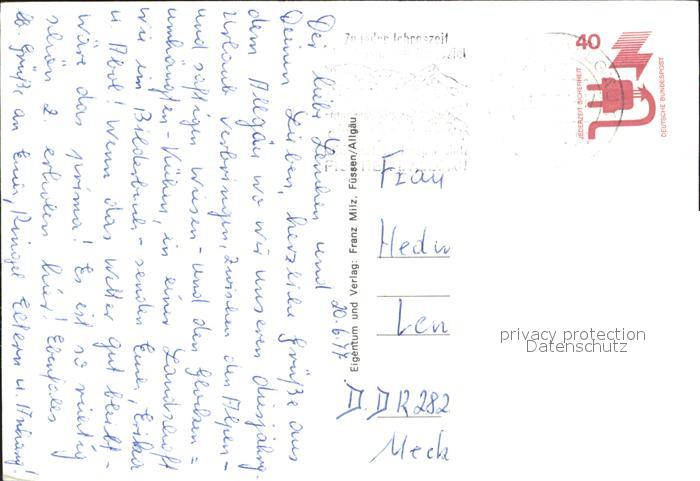 20.6.77
Dir liebe Lenchen und
Deinen Lieben, herzliche Grüße aus
dem Allgäu wo wir unseren diesjährg.
Urlaub verbringen, zwischen den Alpen-
und saftigen Wiesen - und den Glocken=
umhängten - Kühen, in einer Landschaft
wie im Bilderbuch - senden Eure, Erika
u. Wenn das Wetter gut bleibt -
wäre das prima! Es ist so richtig
schön z. erholen hier! Ebenfalls
lb. Grüße an Eure, Eltern u. Anhang!
Eigentum und Verlag: Franz Milz, Füssen/Allgäu
Zu jeder Jahreszeit
40
JEDERZEIT SICHERHEIT
DEUTSCHE BUNDESPOST
Frau
Hedw
Len
DDR 282
Meck
privacy protection
Datenschutz